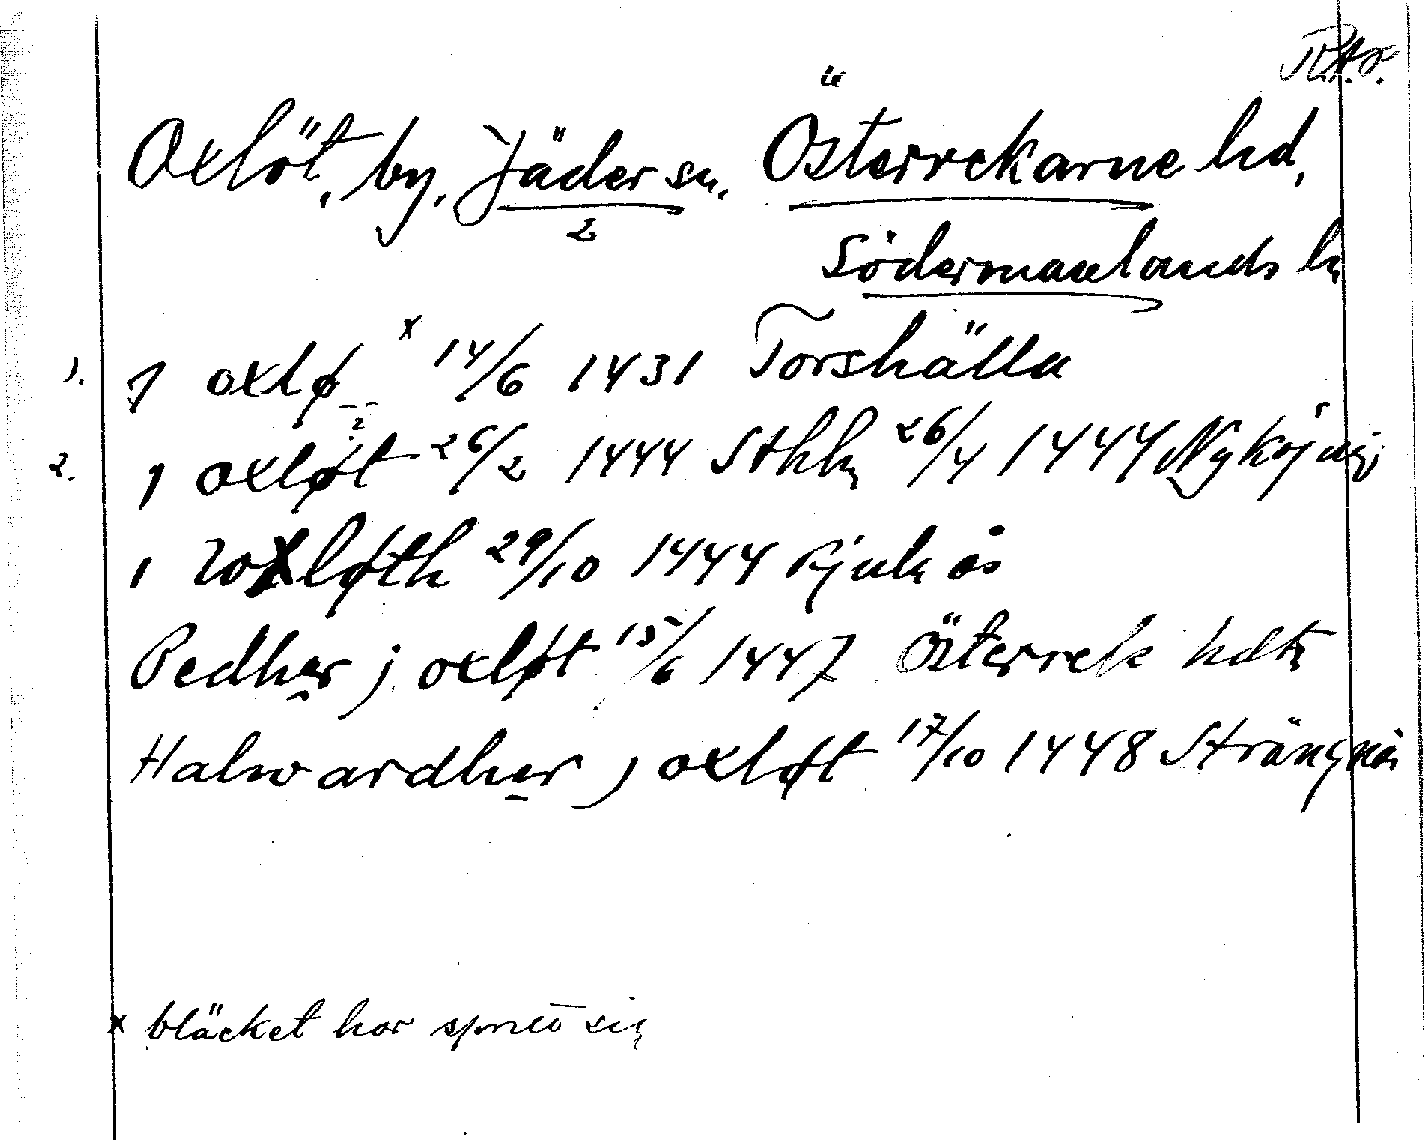 R.A.
Oxlöt, by. Jäder sn. Österrekarne hd,
2
Södermanlands ln
1. J oxlø x 14/6 1431 Torshälla
2. J oxløt 26/2 1444 Sthlm 26/4 1444 Nyköping
1 woxløth 29/10 1444
Pedher j oxløt 15/6 1447 Österrek hdtg
Halwardher j oxløt 17/10 1448 Strängnäs
x bläcket har spritt sig